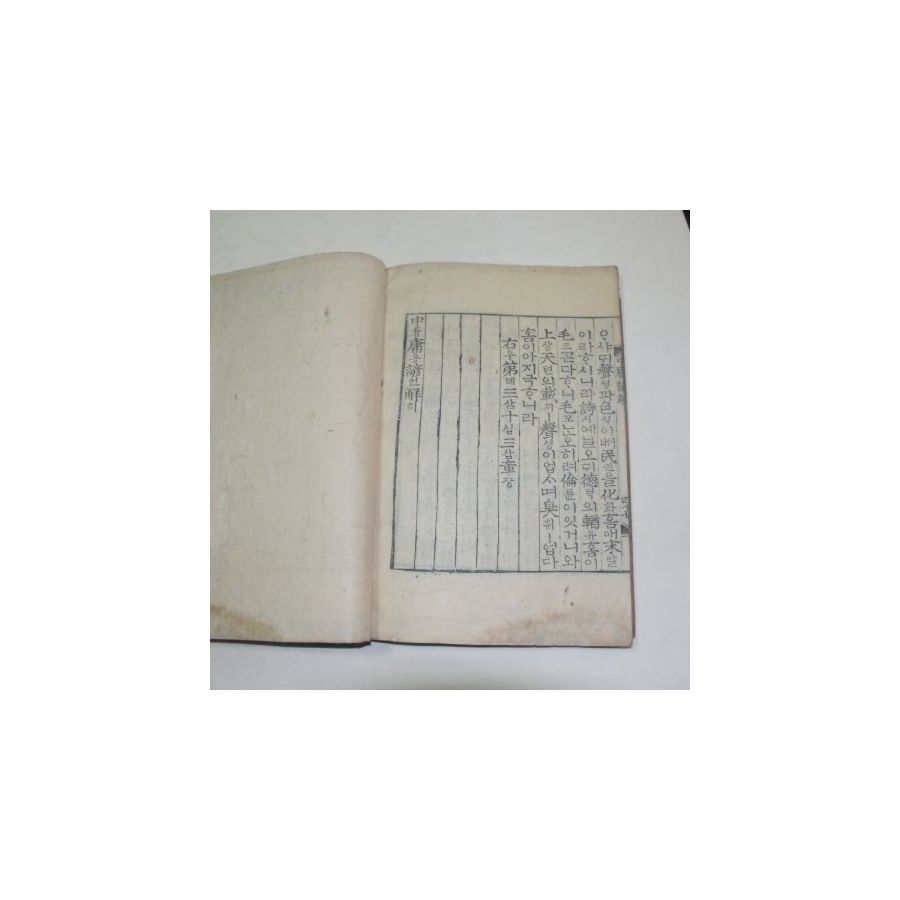 ᄋᆞ샤ᄃᆡ聲셩과色ᄉᆡᆨ이 民민을化화홈애末말
이라ᄒᆞ시니라詩시예ᄀᆞᆯ오ᄃᆡ德덕의輶유홈이
毛모ᄀᆞᆮ다ᄒᆞ니毛모ᄂᆞᆫ오히려倫륜이잇거니와
上샹天텬의載ᄌᆡㅣ聲셩이업스며臭ᄎᆔㅣ업다
홈이아지극ᄒᆞ니라
右우第뎨三삼十십三삼章장
中듕庸용諺언解ᄒᆡ
庸諺解
四十